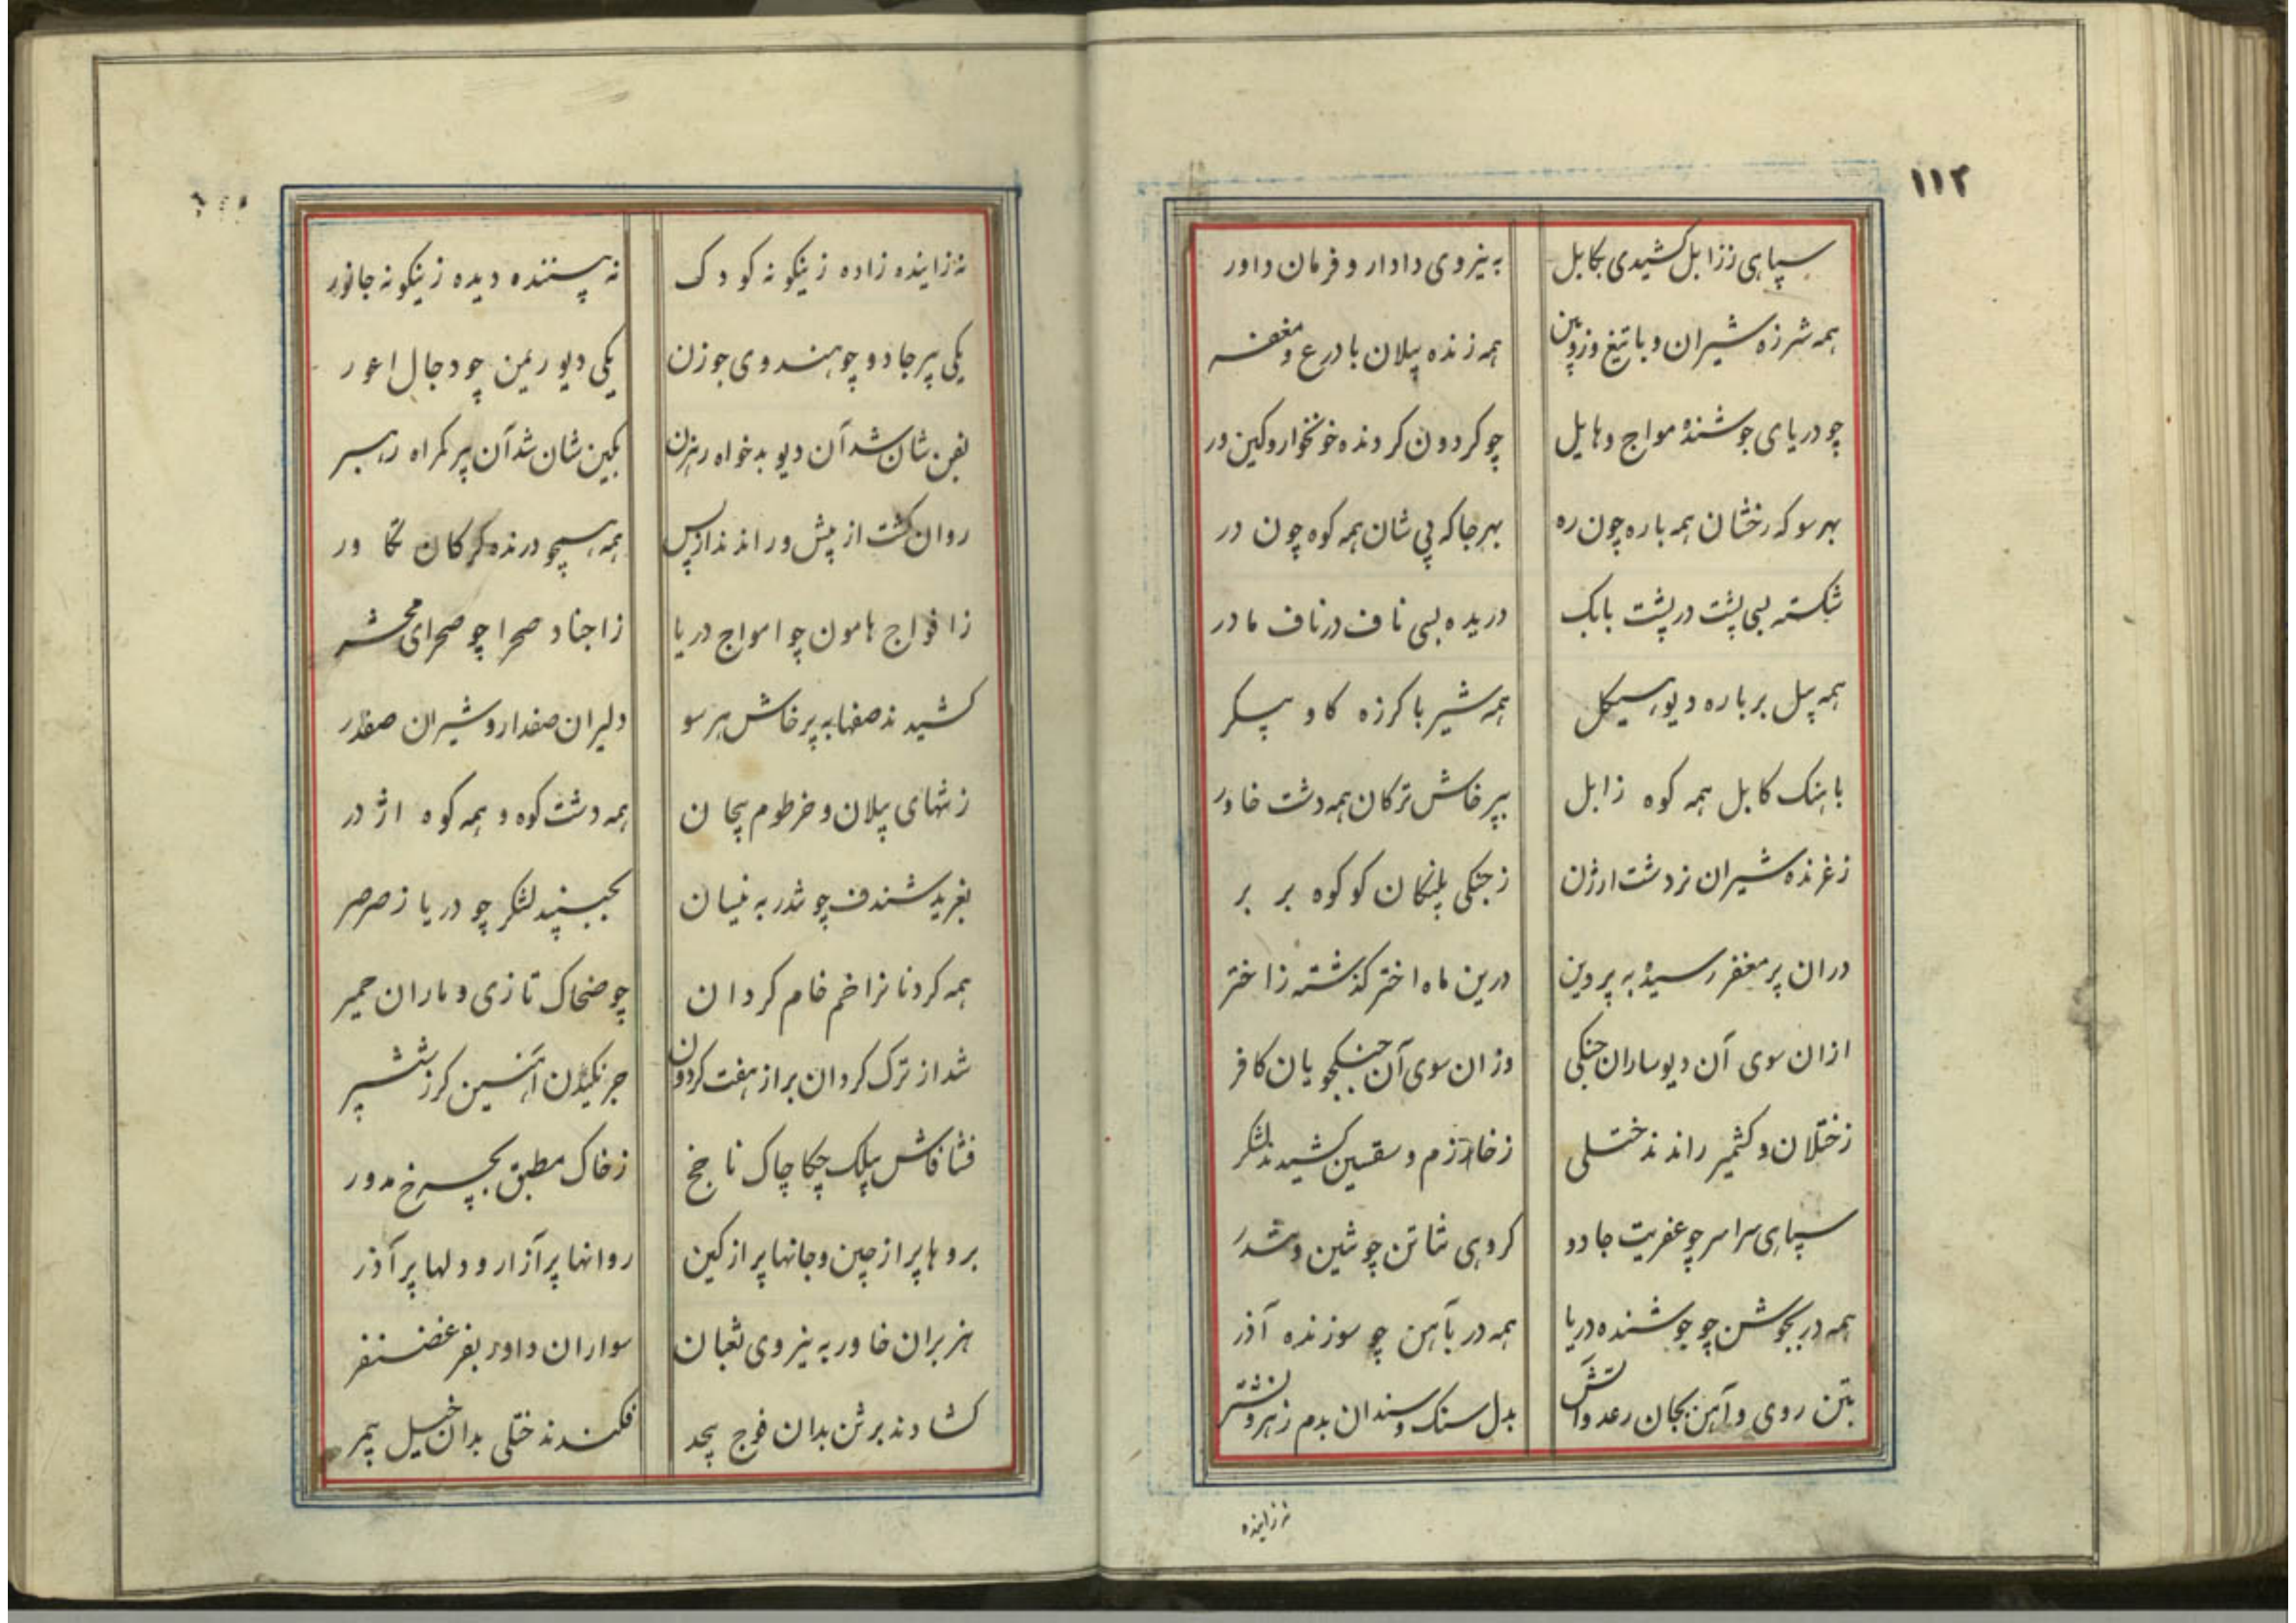 ۱۱۲
سپاهی ززابل کشیدی بکابل به نیروی دادار و فرمان داور
همه شرزه شیران و با تیغ و زوپین همه زنده پیلان با درع و مغفر
چو دریای جوشندهٔ مواج و هایل چو کردون کردنده خونخوار و کین ور
بهر سو که رخشان همه باره چون ره بهر جا که پی شان همه کوه چون در
شکسته بسی پشت در پشت بابک دریده بسی ناف در ناف مادر
همه پیل بر باره دیو هیکل همه شیر با کرزه کاو پیکر
باهنک کابل همه کوه زابل بپرخاش ترکان همه دشت خاور
زغرنده شیران نر دشت ارژن زجنکی پلنکان کو کوه بر بر
دران پر مغفر رسیده به پروین درین ماه اختر کذشته زاختر
ازان سوی آن دیوساران جنکی وزان سوی آن جنکجویان کافر
زختلان و کشمیر راندند ختلی زخوارزم و سقسین کشیدند لشکر
سپاهی سراسر چو عفریت جادو کروهی شاتن چو شین و شدر
همه در بجوشن چو جوشنده دریا همه در بآهن چو سوزنده آذر
بتن روی و آهن بجان رعد و آتش بدل سنک و سندان بدم زهر و نشتر
نه زاینده
نه زاینده زاده زینکونه کودک نه بیننده دیده زینکونه جانور
یکی پیر جادو چو هندوی جوزن یکی دیو ریمن چو دجال اعور
بفن شان شد آن دیو بدخواه رهزن بکین شان شد آن پیر کمراه رهبر
روان کشت از پیش و راندند از پس همه همچو درنده کرکان تکاور
زافواج هامون چو امواج دریا زاجناد صحرا چو صحرای محشر
کشیدند صفها به پرخاش هر سو دلیران صفدار و شیران صفدر
زتنهای پیلان و خرطوم پیچان همه دشت کوه و همه کوه اژدر
بغرید شندف چو تندر به نیسان بجنبید لشکر چو دریا زصرصر
همه کردنانرا خم خام کردان چو ضحاک تازی و ماران حمیر
شد از ترک کردان براز هفت کردون جرنکیدن آهنین کرز ششپر
فشافاش بیلک چکاچاک ناچخ زخاک مطبق بچرخ مدور
بروها پر از چین و جانها پر از کین روانها پر آزار و دلها پر آذر
هزبران خاور به نیروی ثعبان سواران داور بفر غضنفر
کشادند برثن بدان فوج بیحد فکندند ختلی بدان خیل بیمر